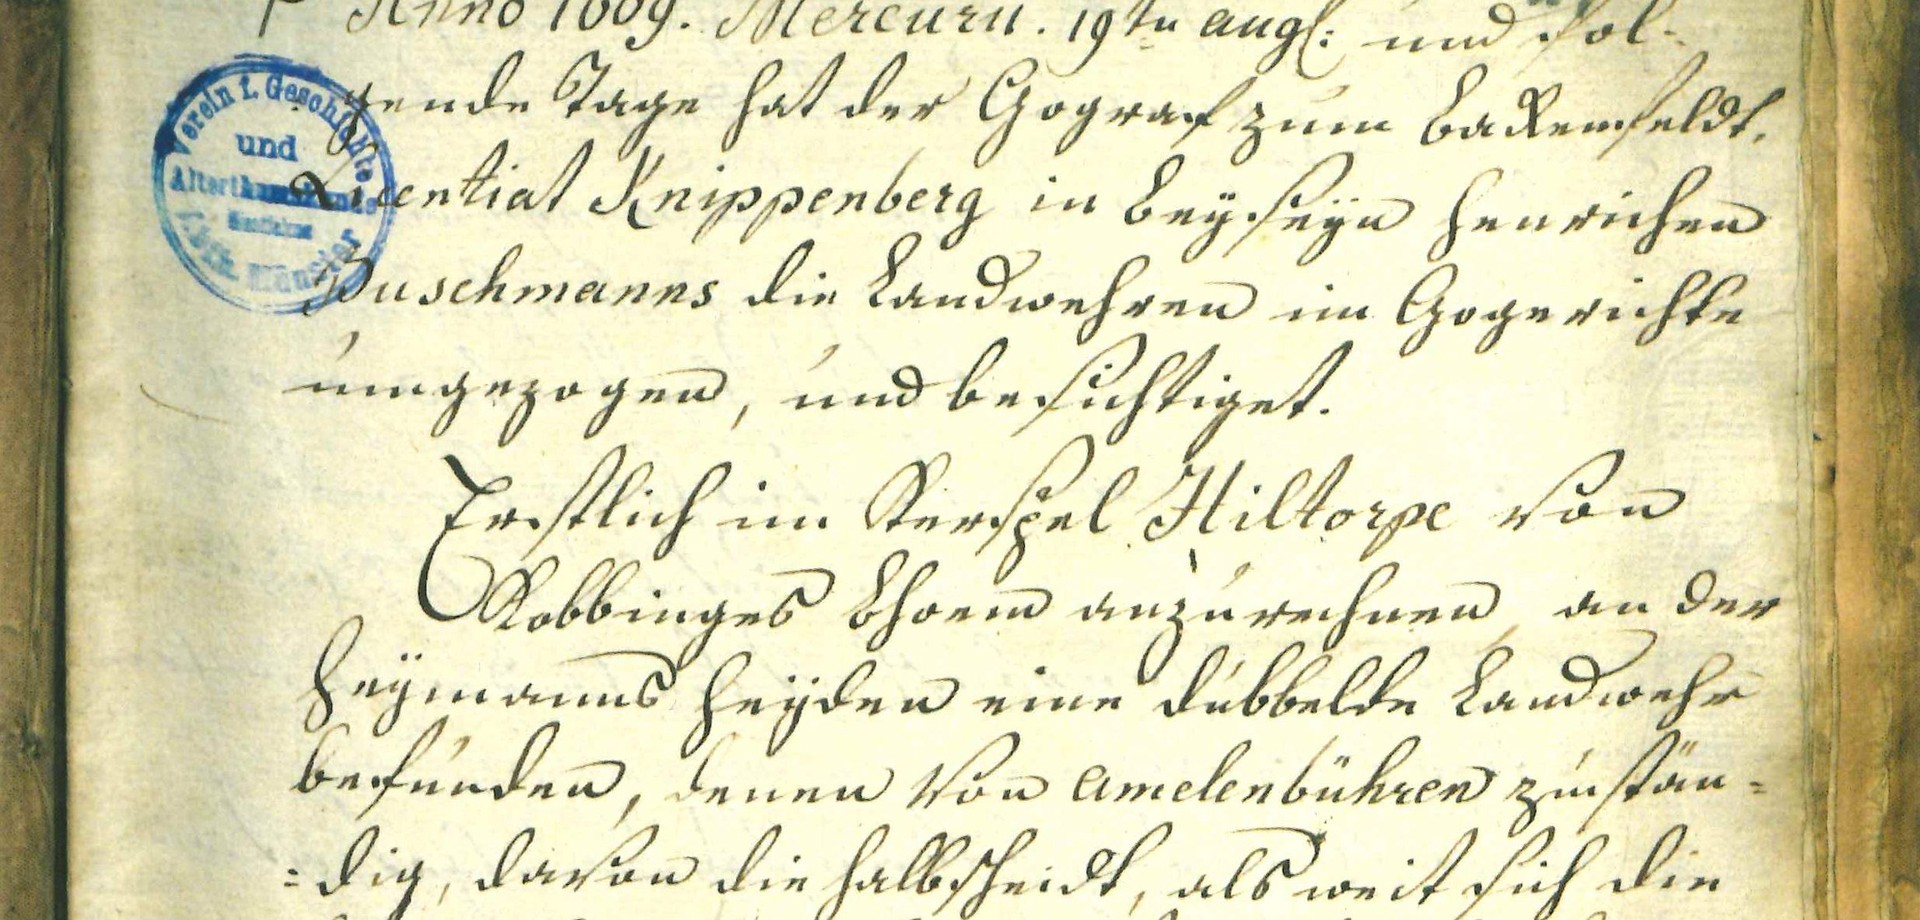 Anno 1609. Mercurii. 19tn augl: und fol-
gende Tage hat der Gograf zum Bakemfeldt.
Licentiat Knippenberg in Beÿseÿn Henrichen
Buschmanns die Landwehren im Gogerichte
umgezogen, und besichtiget.
Erstlich im Kerspel Hiltorpe von
Robbinges Bhoem anzurechnen, an der
Heÿmanns Heÿden eine dubbelde Landwehr
befunden, denen von Amelenbühren zustän=
=dig, davon die halbscheidt, als weit sich die
Verein f. Geschichte
und
Alterthumskunde
Westfalens
Münster